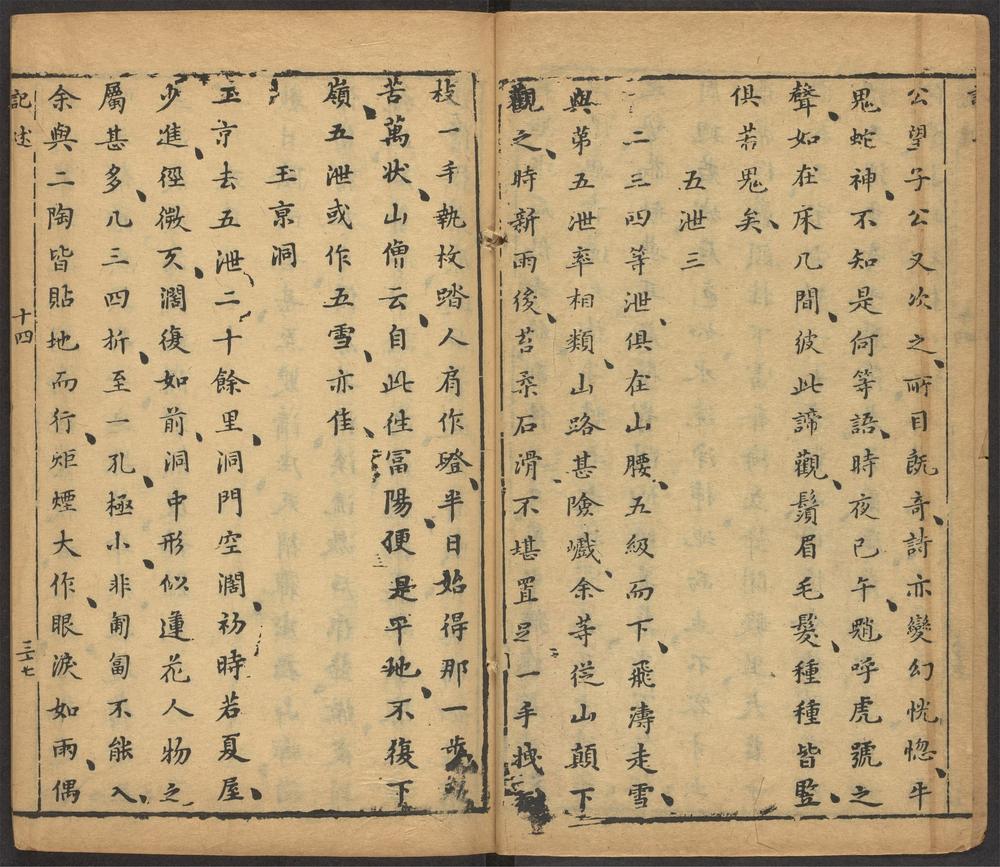 公望子公又次之所目既奇詩亦變幻恍惚牛
鬼蛇神不知是何等語時夜已午魈呼虎號之
聲如在床几間彼此諦觀鬚眉毛髮種種皆竪
俱若鬼矣
五泄三
二三四等泄俱在山腰五級而下飛濤走雪
與第五泄率相類山路甚險巇余等從山顛下
觀之時新雨後苔柔石滑不堪置足一手拽
枝一手執杖踏人肩作磴半日始得那一步
苦萬狀山僧云自此徃富陽便是平地不復下
嶺五泄或作五雪亦佳
玉京洞
玉京去五泄二十餘里洞門空濶初時若夏屋
少進徑微又濶復如前洞中形似蓮花人物之
屬甚多几三四折至一孔極小非匍匐不能入
余與二陶皆貼地而行炬煙大作眼淚如雨偶
記述
十四
三七